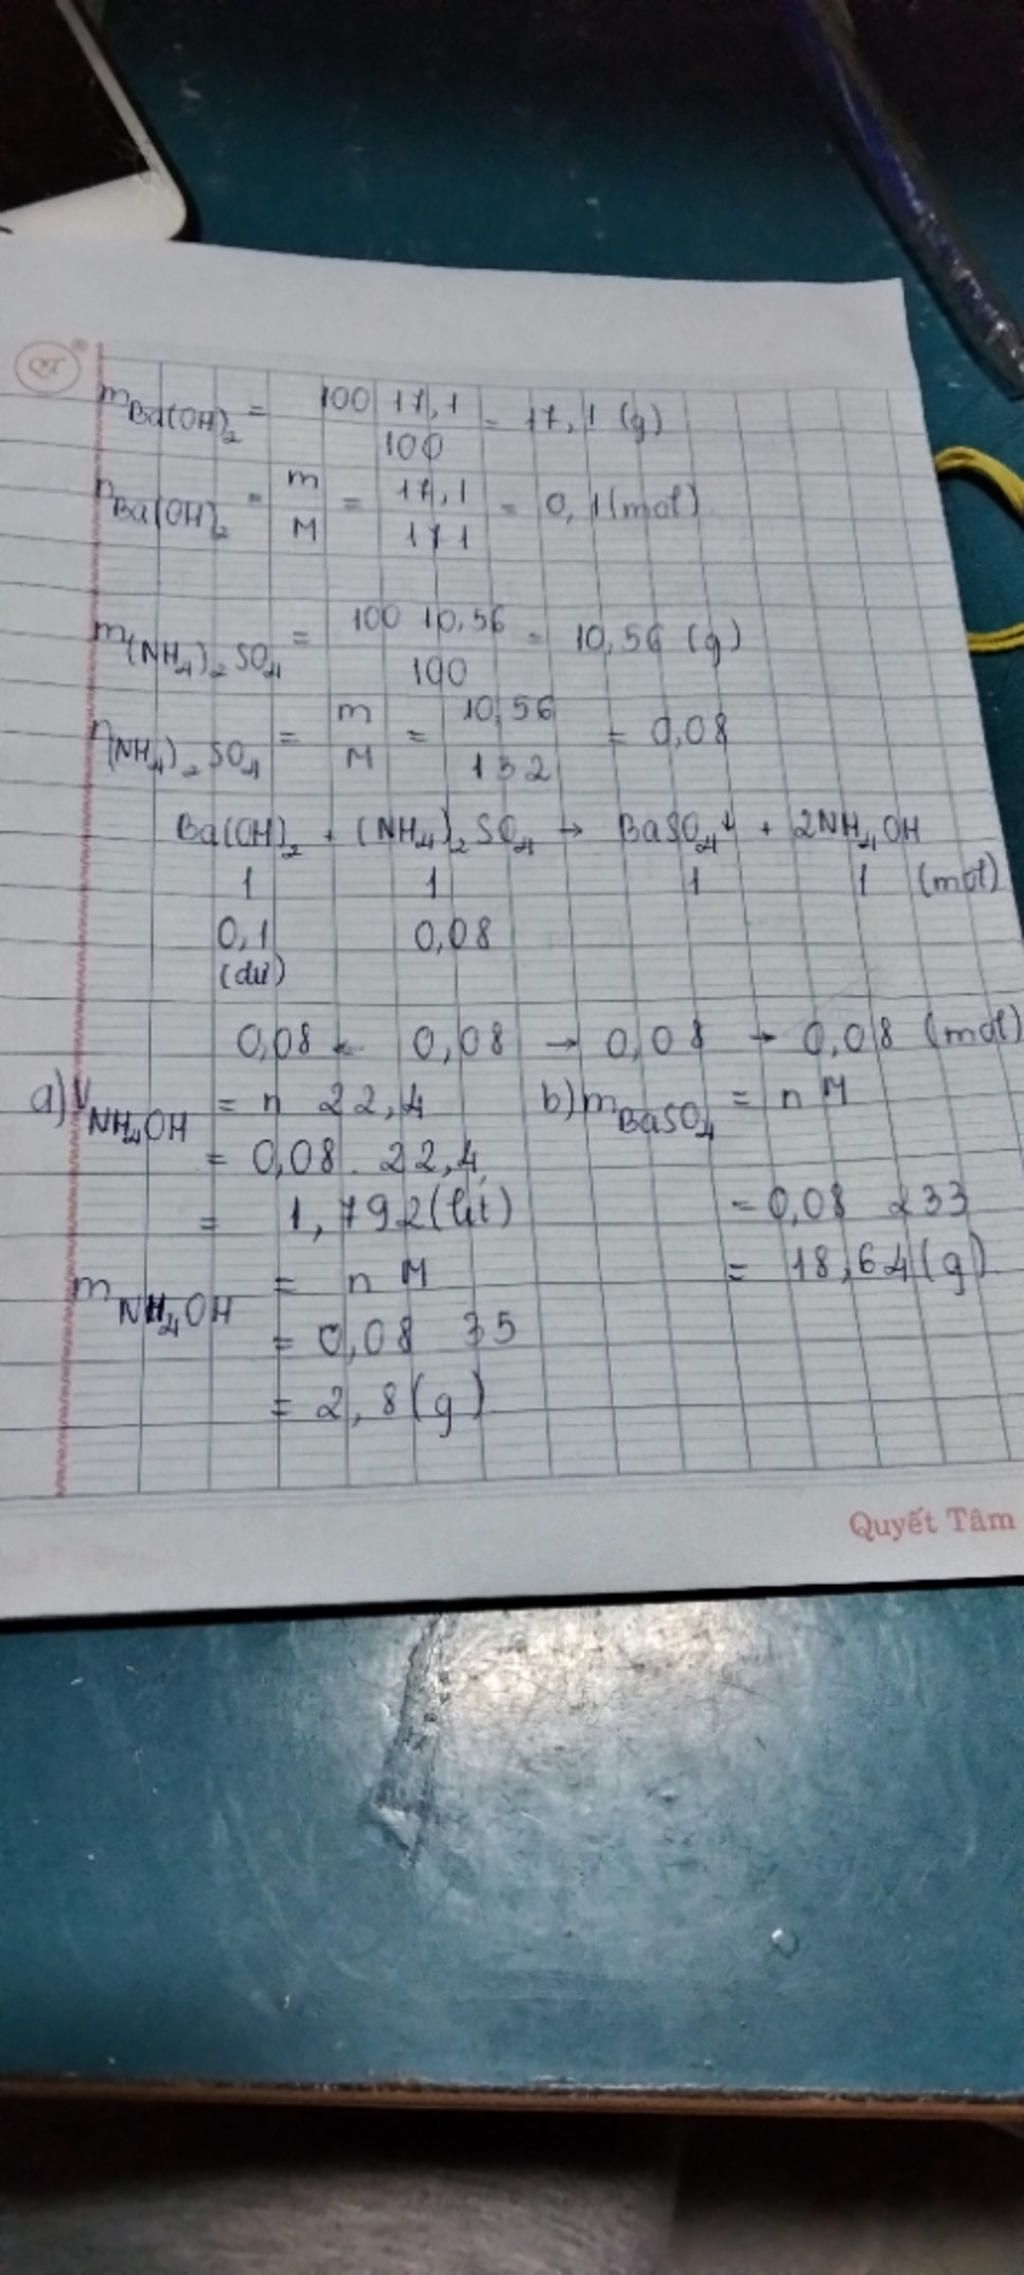 QT
mBa(OH)₂ = 100 17,1 / 100 = 17,1 (g)
nBa(OH)₂ = m / M = 17,1 / 171 = 0,1 (mol)
m(NH₄)₂SO₄ = 100 10,56 / 100 = 10,56 (g)
n(NH₄)₂SO₄ = m / M = 10,56 / 132 = 0,08
Ba(OH)₂ + (NH₄)₂SO₄ → BaSO₄↓ + 2NH₄OH
1 1 1 1 (mol)
0,1 0,08
(dư)
0,08 ← 0,08 → 0,08 → 0,08 (mol)
a) VNH₄OH = n 22,4
= 0,08. 22,4
= 1,792 (lít)
mNH₄OH = n M
= 0,08 35
= 2,8 (g)
b) mBaSO₄ = n M
= 0,08 233
= 18,64 (g)
Quyết Tâm